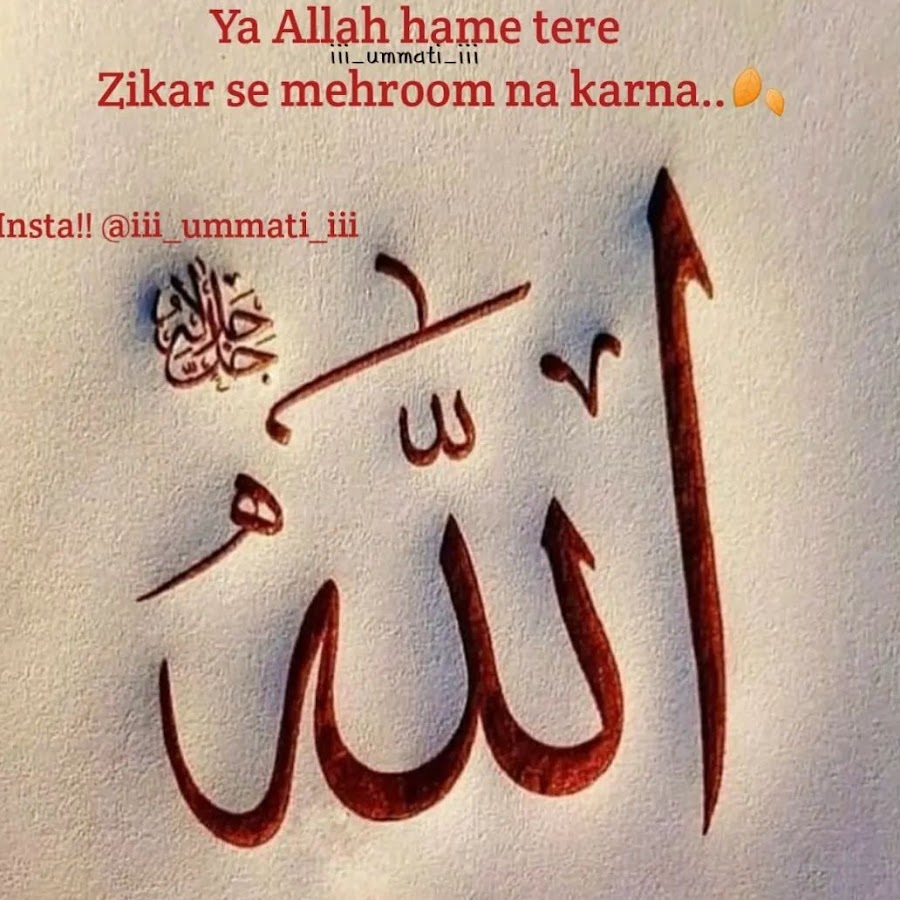 Ya Allah hame tere
iii_ummati_iii
Zikar se mehroom na karna..
Insta!! @iii_ummati_iii
جل جلاله
اللّٰهُ